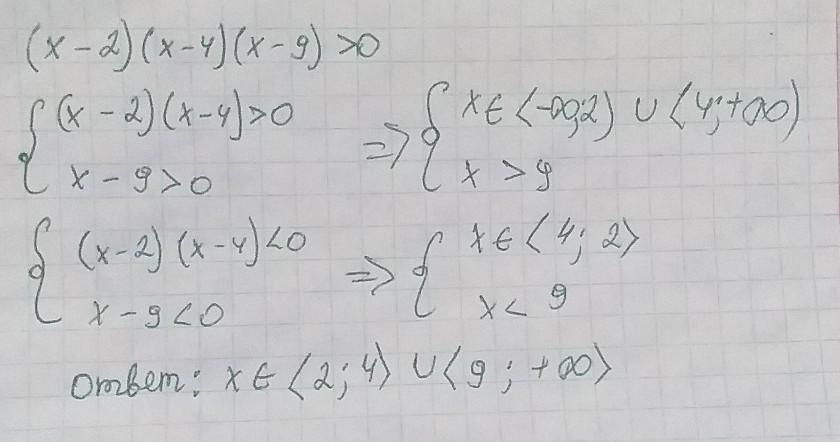 (x-2)(x-4)(x-9)>0
{(x-2)(x-4)>0 => {x∈(-∞;2) ∪ (4;+∞)
x-9>0 x>9
{(x-2)(x-4)<0 => {x∈(4;2)
x-9<0 x<9
Ответ: x∈(2;4) ∪ (9;+∞)